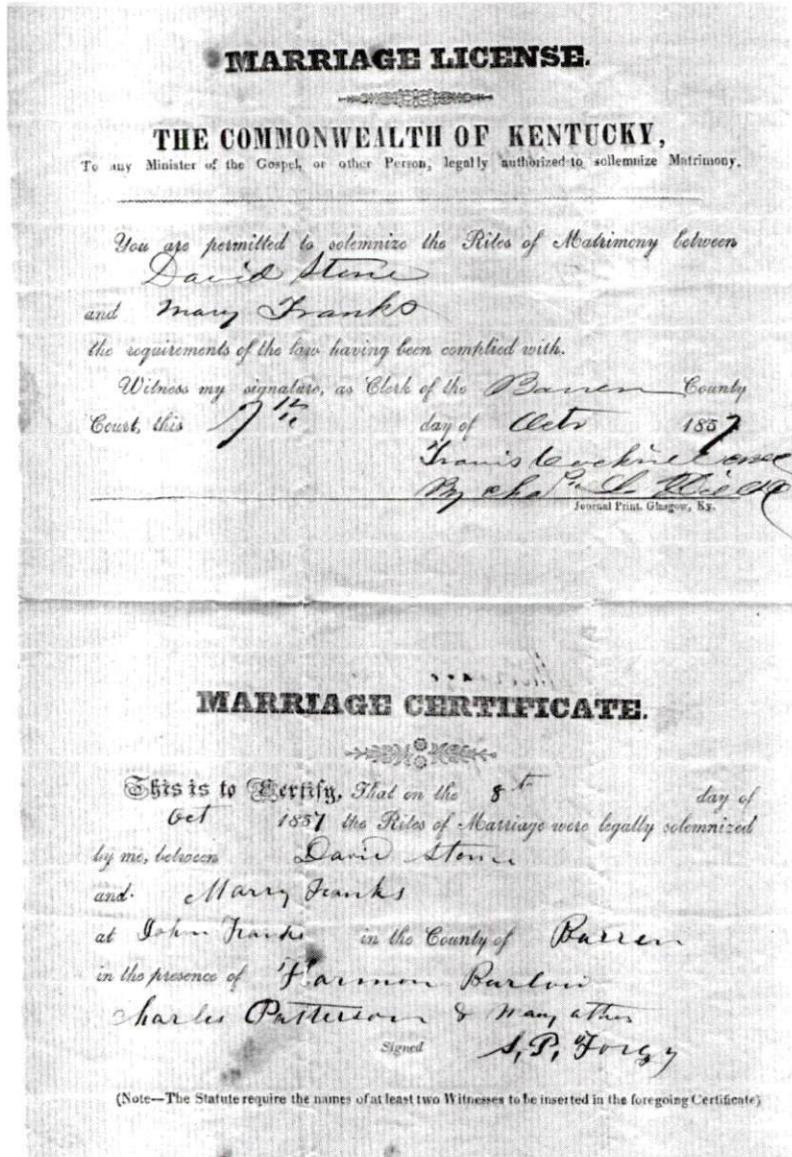 MARRIAGE LICENSE.
THE COMMONWEALTH OF KENTUCKY,
To any Minister of the Gospel, or other Person, legally authorized to sollemnize Matrimony.
You are permitted to solemnize the Rites of Matrimony between
David Stone
and Mary Franks
the requirements of the law having been complied with.
Witness my signature, as Clerk of the Barren County
Court, this 7th day of Octr 1857
Travis Cockrill
By Chas L
Journal Print. Glasgow, Ky.
MARRIAGE CERTIFICATE.
This is to Certify, That on the 8th day of
Oct 1857 the Rites of Marriage were legally solemnized
by me, between David Stone
and Marry Franks
at John Franks in the County of Barren
in the presence of Harmon Barlow
Charles Patterson & many other
Signed S. P. Forgy
(Note—The Statute require the names of at least two Witnesses to be inserted in the foregoing Certificate)